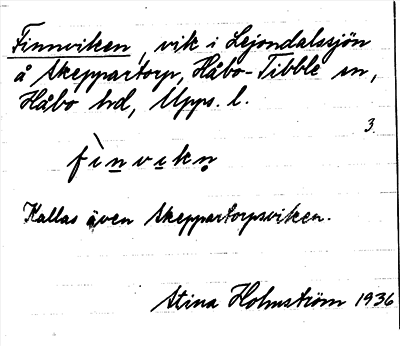 Finnviken, vik i Lejondalssjön
å Skeppartorp, Håbo-Tibble sn,
Håbo hd, Upps. l.
3.
fìnvikn̥
Kallas även Skeppartorpsviken.
Stina Holmström 1936